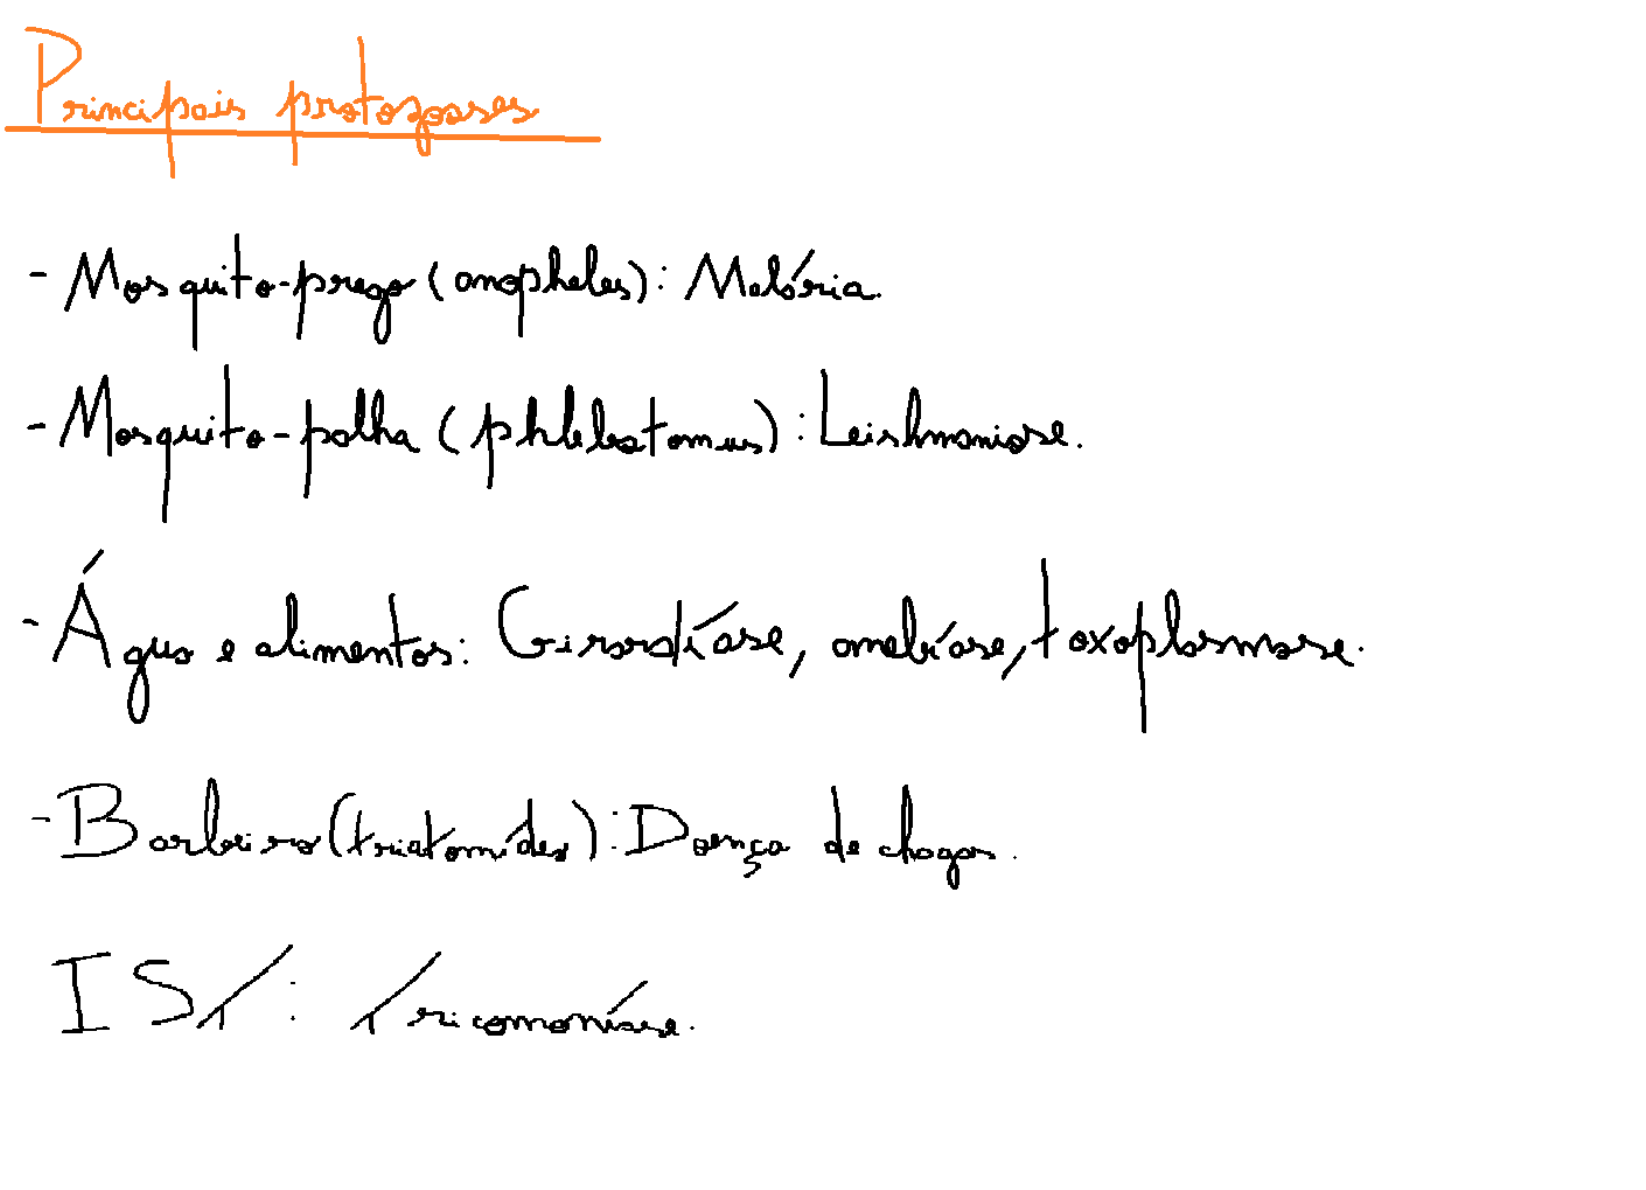 Principais protozooses
- Mosquito-prego (anopheles): Malária.
- Mosquito-palha (phlebotomus): Leishmaniose.
- Água e alimentos: Giardíase, amebíase, toxoplasmose.
- Barbeiro (triatomídes): Doença de chagas.
IST: Tricomoníase.